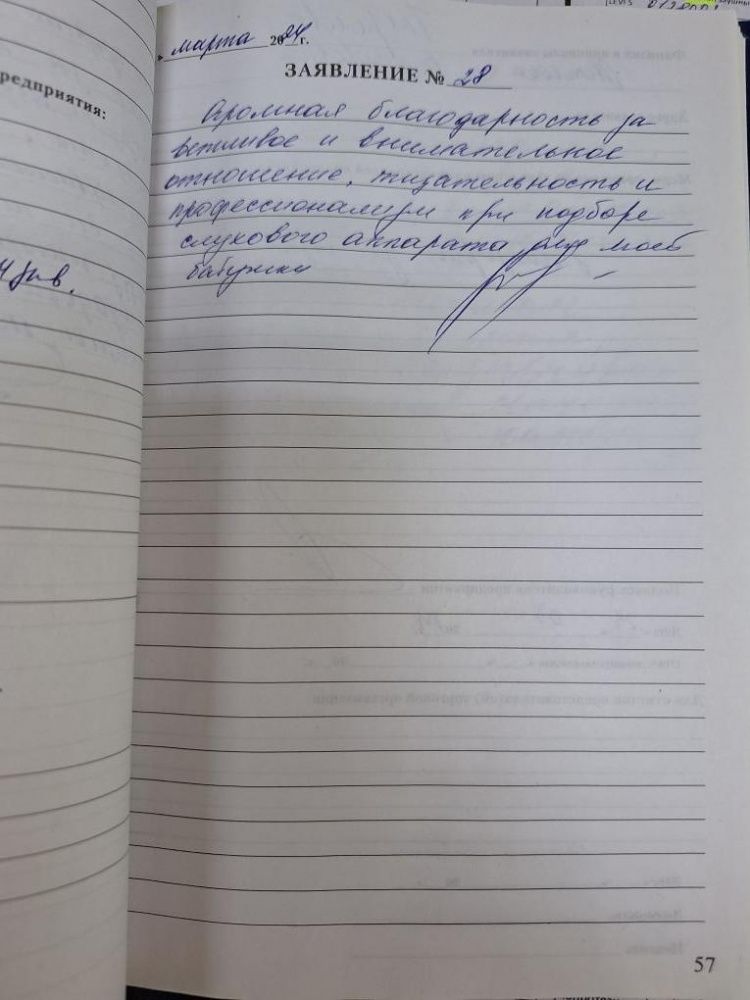 марта 2024 г.
ЗАЯВЛЕНИЕ № 28
Огромная благодарность за
вежливое и внимательное
отношение, тщательность и
профессионализм при подборе
слухового аппарата для моей
бабушки
редприятия:
57